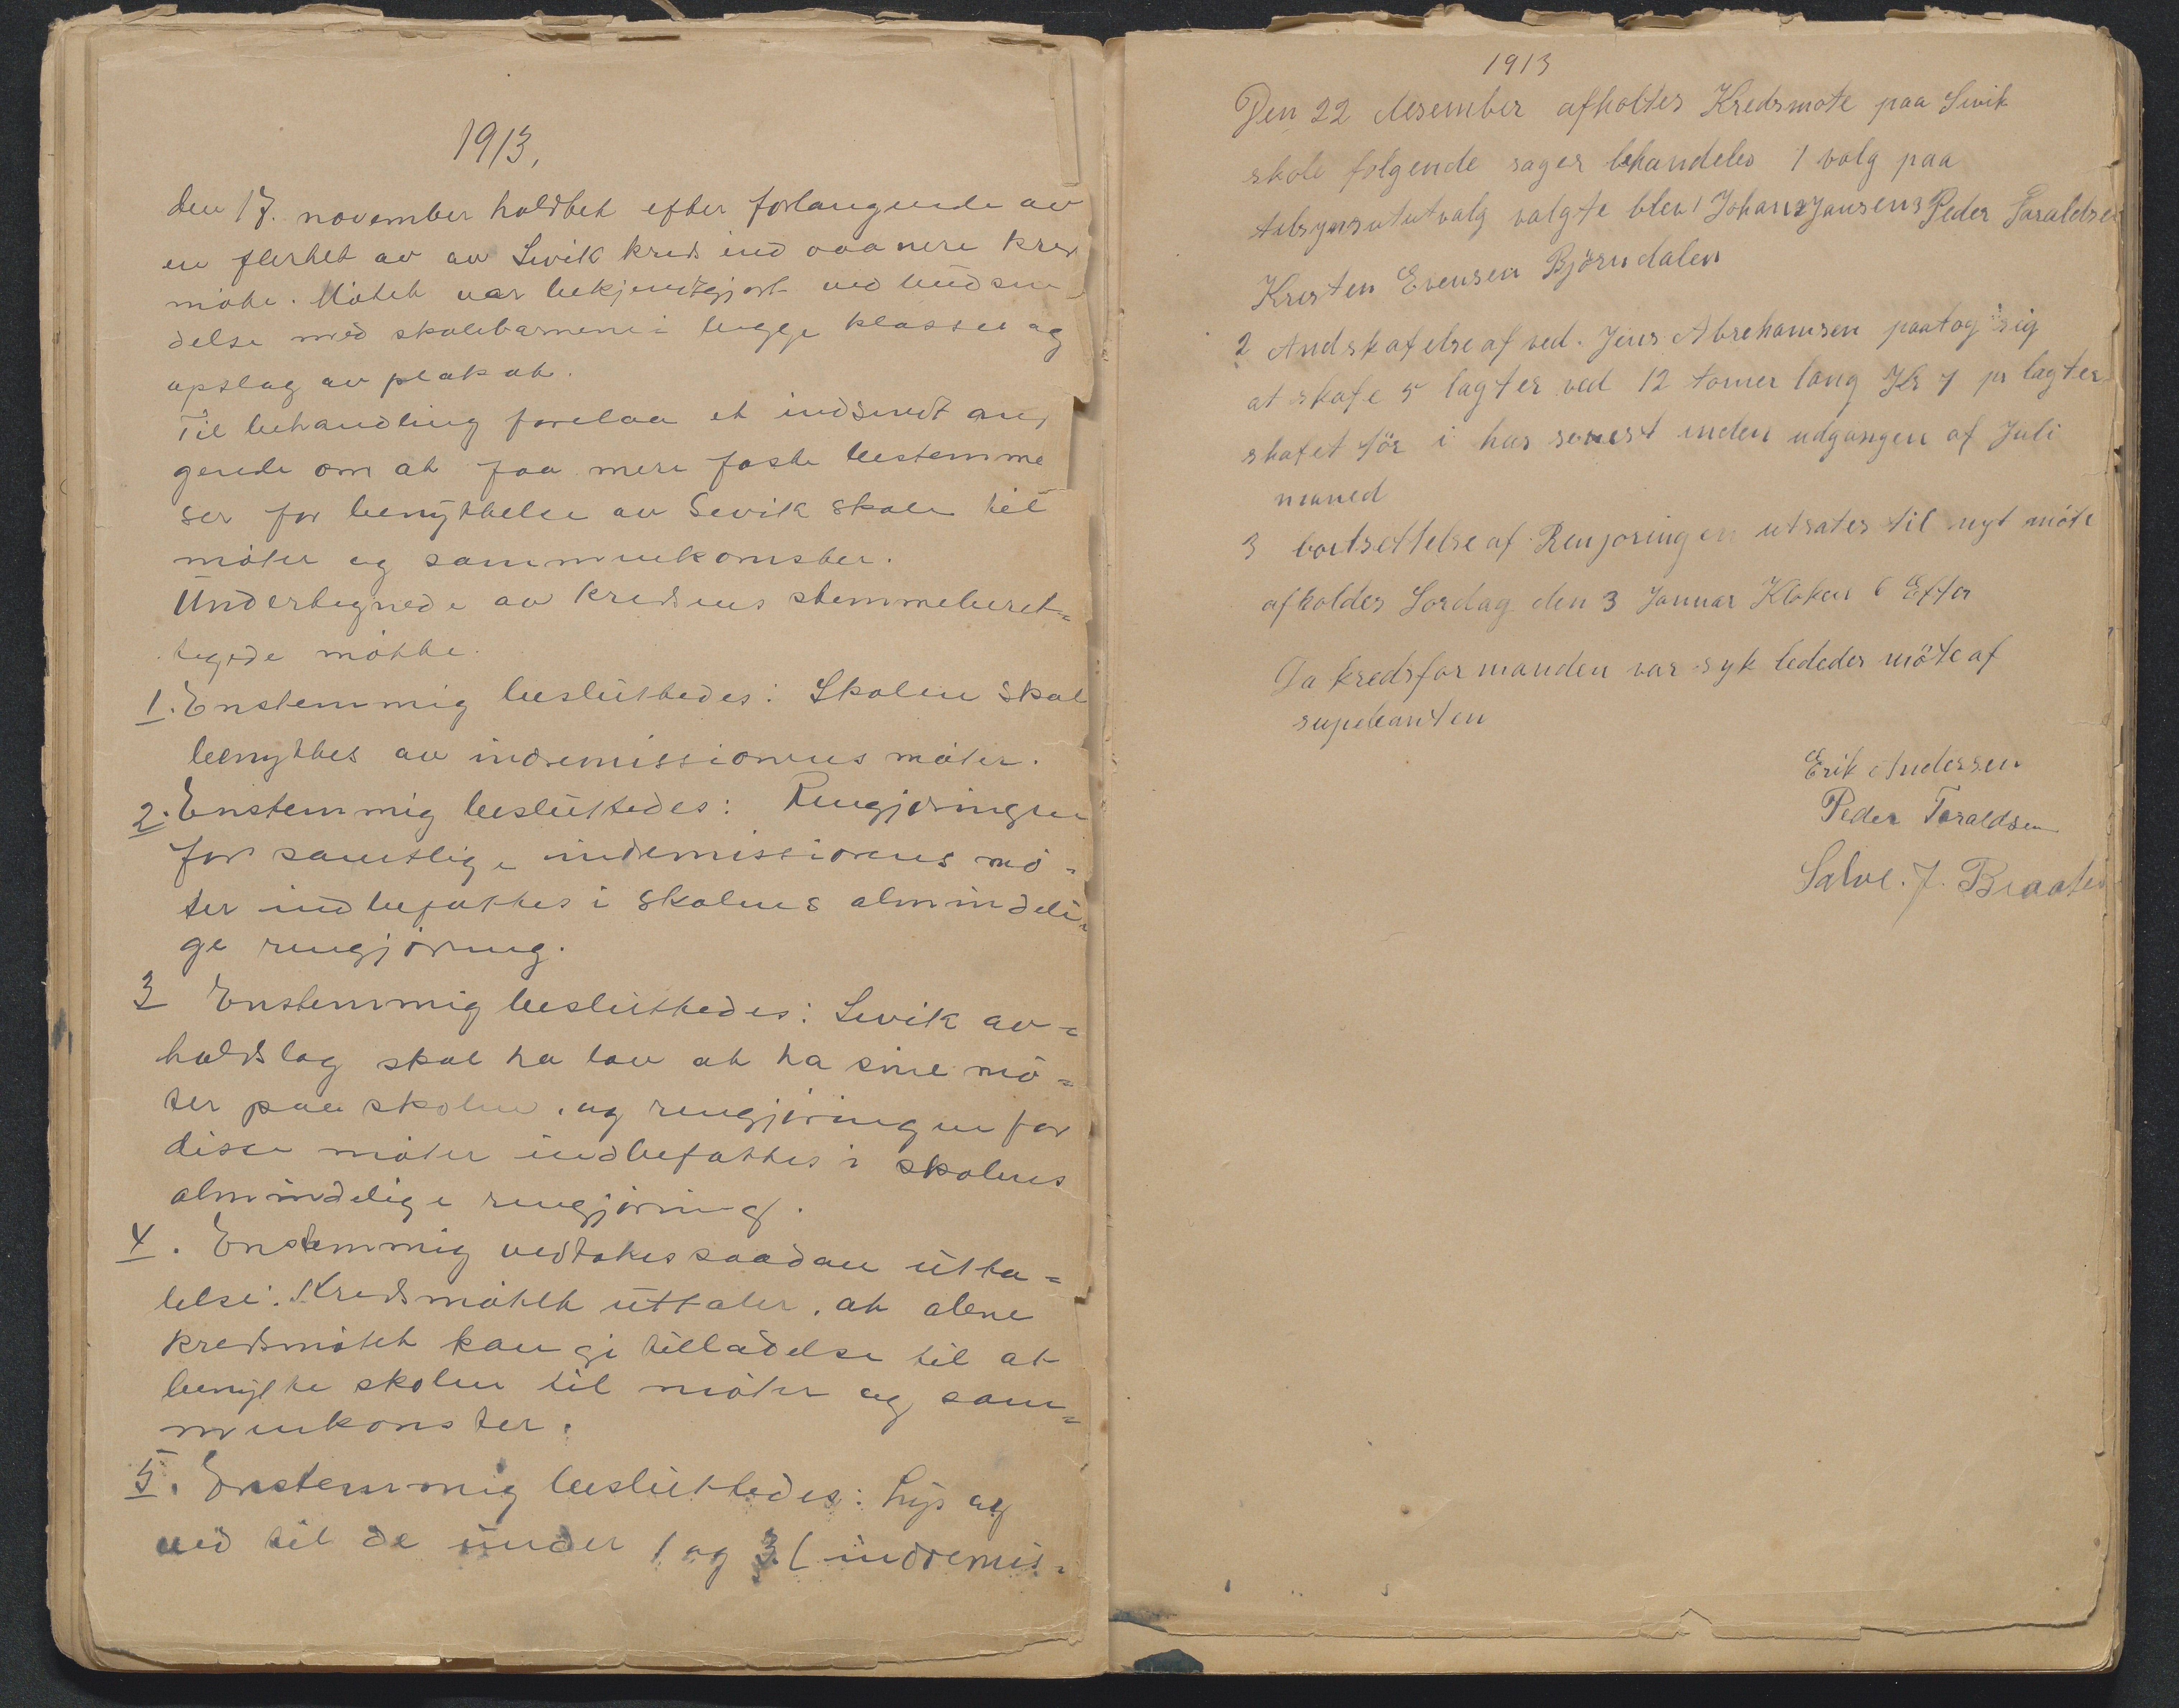 1913.
den 17. november holdtet efter forlangende av
en flerhet av av Sevik kreds ind vaanere kreds
möte. Mötet var bekjendtgjort ved budsen
delse med skolebarnene i begge klasser og
opslag av plakat.
Til behandling forelaa et indsendt an
gende om at faa mere faste bestemme
ser for benyttelse av Sevik skole til
möter og sammenkomster.
Undertegnede av kredsens stemmeberet=
tigede mötte.
1. Enstemmig besluttedes: Skolen skal
benyttes av indremissionens möter.
2. Enstemmig besluttedes: Rengjöringen
for samtlige indremissionens mö=
ter indbefattes i skolens almindeli=
ge rengjöring.
3 Enstemmig besluttedes: Sevik av=
holdslag skal ha lov at ha sine mö=
ter paa skolen, og rengjöringen for
disse möter indbefattes i skolens
almindelige rengjöring.
4. Enstemmig vedtokes saadan utta=
lelse: Kredsmötet uttaler, at alene
kredsmötet kan gi tilladelse til at
benytte skolen til möter og sam=
menkonster.
5. Enstemmig besluttedes: Lys og
ved til de under 1 og 3 (indremis=
1913
Den 22 desember afholtes Kredsmote paa Sevik
skole folgende sager behandeles 1 valg paa
tilsynsututvalg valgte blev 1 Johan 2 Jansen 3 Peder Taraldsen
Kristen Evensen Björndalen
2 Andskafelse af ved. Jens Abrehamsen paatog sig
at skafe 5 lagter ved 12 tomer lang Kr 7 pr lagter
skafet för i hus senest inden udgangen af Juli
maned
3 bortsettelse af Renjoringen utsates til nyt möte
afholdes Lordag den 3 Januar Kloken 6 Efter
Da kredsformanden var syk lededes möte af
supeleanten
Erik Andersen
Peder Taraldsen
Salve. J. Braaten